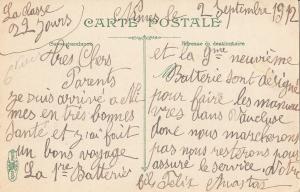 La classe
22 jours
Nîmes le 2 Septembre 1912
CARTE POSTALE
Correspondance
Adresse du destinataire
Très Chers
Parents
je suis arrivé a Nî
mes en très bonnes
santé et j'ai fait
un bon voyage
La 1re Batterie
et la 9me neuvième
Batterie sont désigné
pour faire les manœu
vres dans Vaucluse
donc nous marcherons
pas nous resterons pour
assuré le service. Votre
fils Félix